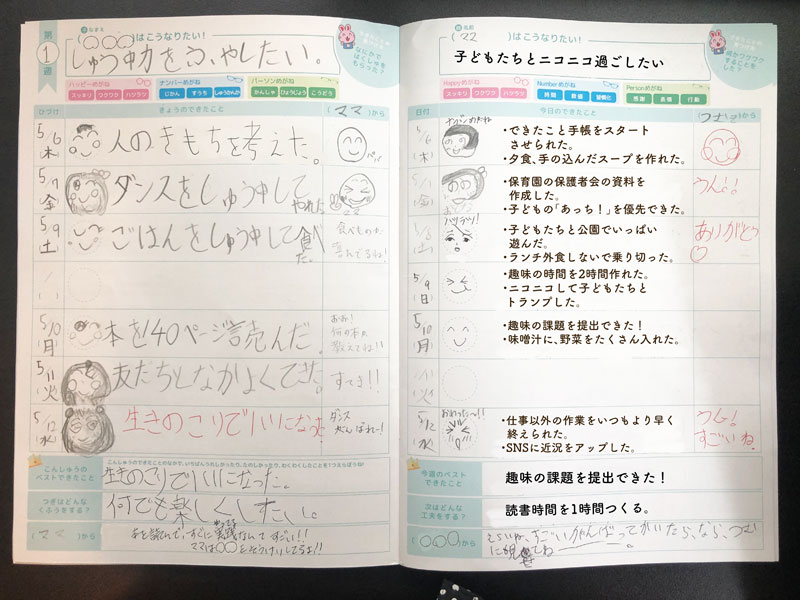 第1週
(○○○)はこうなりたい!
しゅう中力をふやしたい。
ハッピーめがね
スッキリ ワクワク ハツラツ
ナンバーめがね
じかん すうち しゅうかんか
パーソンめがね
かんしゃ ひょうじょう こうどう
ひづけ
きょうのできたこと
(ママ)から
5/6 木
人のきもちを考えた。
金
ダンスをしゅう中して
やれた
5/9 土
ごはんをしゅう中して食べ
た。
食べものが
喜んでるね!
5/10 (月)
本を40ページ読んだ。
何の本か
教えてね!!
5/11 火
友だちとなかよくできた。
すてき!!
5/12 水
生きのこりで1いになった
ダンス
がんばれー!
こんしゅうの
ベストできたこと
生きのこりで1いになった。
つぎはどんな
くふうをする?
何でも楽しくしたい。
(ママ)から
すぐに実践なんてすごい!!
ママは○○をそうけいしてるよ!!
(ママ)はこうなりたい!
子どもたちとニコニコ過ごしたい
Happyめがね
スッキリ ワクワク ハツラツ
Numberめがね
時間 数値 習慣化
Personめがね
感謝 表情 行動
日付
今日のできたこと
5/6 (木)
・できたこと手帳をスタート
させられた。
・夕食、手の込んだスープを作れた。
(金)
・保育園の保護者会の資料を
作成した。
・子どもの「あっち!」を優先できた。
うん!!
(土)
・子どもたちと公園でいっぱい
遊んだ。
・ランチ外食しないで乗り切った。
ありがとう
5/9 (日)
・趣味の時間を2時間作れた。
・ニコニコして子どもたちと
トランプした。
5/10 (月)
・趣味の課題を提出できた!
・味噌汁に、野菜をたくさん入れた。
(火)
5/12 (水)
おわった〜!!
・仕事以外の作業をいつもより早く
終えられた。
・SNSに近況をアップした。
うん!
すごいね
今週のベスト
できたこと
趣味の課題を提出できた!
次はどんな
工夫をする?
読書時間を1時間つくる。
(○○○)から